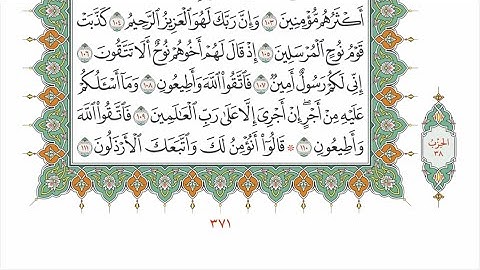 أَكْثَرُهُم مُّؤْمِنِينَ ١٠٣ وَإِنَّ رَبَّكَ لَهُوَ ٱلْعَزِيزُ ٱلرَّحِيمُ ١٠٤ كَذَّبَتْ
قَوْمُ نُوحٍ ٱلْمُرْسَلِينَ ١٠٥ إِذْ قَالَ لَهُمْ أَخُوهُمْ نُوحٌ أَلَا تَتَّقُونَ ١٠٦
إِنِّى لَكُمْ رَسُولٌ أَمِينٌ ١٠٧ فَٱتَّقُوا۟ ٱللَّهَ وَأَطِيعُونِ ١٠٨ وَمَآ أَسْـَٔلُكُمْ
عَلَيْهِ مِنْ أَجْرٍ ۖ إِنْ أَجْرِىَ إِلَّا عَلَىٰ رَبِّ ٱلْعَـٰلَمِينَ ١٠٩ فَٱتَّقُوا۟ ٱللَّهَ
وَأَطِيعُونِ ١١٠ ۞ قَالُوٓا۟ أَنُؤْمِنُ لَكَ وَٱتَّبَعَكَ ٱلْأَرْذَلُونَ ١١١
الحِزْبُ
٣٨
٣٧١